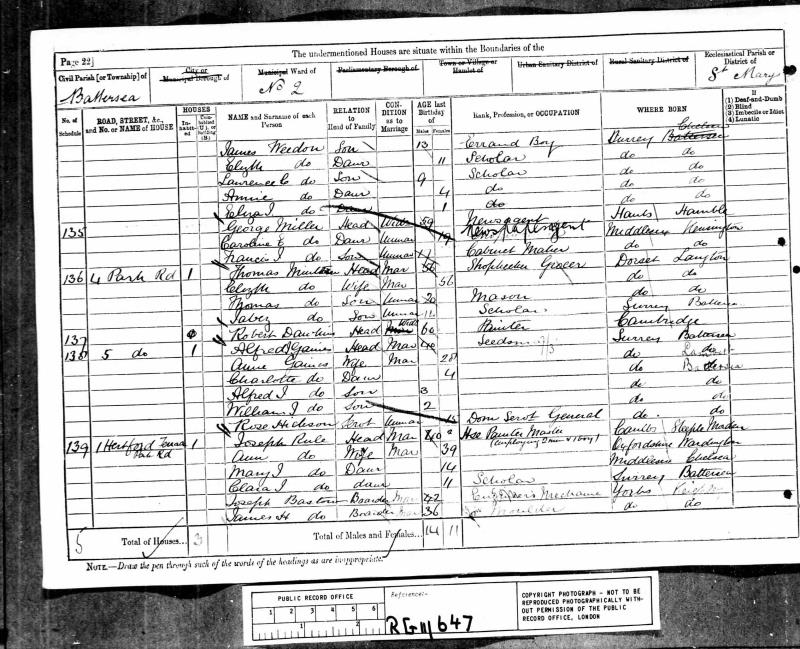 The undermentioned Houses are situate within the Boundaries of the
Page 22]
Civil Parish [or Township] of
Battersea
City or Municipal Borough of
Municipal Ward of
No 2
Parliamentary Borough of
Town or Village or Hamlet of
Urban Sanitary District of
Rural Sanitary District of
Ecclesiastical Parish or District of
St Mary
No. of Schedule
ROAD, STREET, &c., and No. or NAME of HOUSE
HOUSES
Inhabited
Uninhabited (U.), or Building (B.)
NAME and Surname of each Person
RELATION to Head of Family
CONDITION as to Marriage
AGE last Birthday of
Males
Females
Rank, Profession, or OCCUPATION
WHERE BORN
If
(1) Deaf-and-Dumb
(2) Blind
(3) Imbecile or Idiot
(4) Lunatic
James Weedon Son 13 Errand Boy Surrey Battersea Chelsea
Elizth do Daur 11 Scholar do do
Laurence C do Son 9 Scholar do do
Annie do Daur 4 do do do
Eliza J do Daur 1 do do do
135 George Miller Head Widr 59 Newsagent Hants Hamble
Caroline E do Daur Unmar 19 Newspaper agent Middlesex Kensington
Francis J do Son Unmar 17 Cabinet Maker do do
136 4 Park Rd 1 Thomas Head Mar 56 Shopkeeper Grocer Dorset Langton
Elizth do Wife Mar 56 do do
Thomas do Son Unmar 20 Mason do do
Jabez do Son Unmar 12 Scholar Surrey Battersea
137 Robert Dawkins Head Widr 60 Painter Cambridge
138 5 do 1 Alfred J Gaines Head Mar 40 Seedsman Surrey Battersea
Anne Gaines Wife Mar 28 do do
Charlotte do Daur 4 do Battersea
Alfred J do Son 3 do do
William J do Son 2 do do
Rose Hudson Servt Unmar 15 Dom Servt General do do
139 1 Hertford Terrace Park Rd 1 Joseph Rule Head Mar 40 Hse Painter Master (employing 2 men & 1 boy) Cambs Steeple Morden
Ann do Wife Mar 39 Oxfordshire Wardington
Mary J do Daur 14 Middlesex Chelsea
Clara J do daur 11 Scholar Surrey Battersea
Joseph Bastow Boarder Mar 42 Mechanic Yorks Keighley
James H do Boarder Mar 36 Moulder do do
5
Total of Houses... 3
Total of Males and Females... 14 11
NOTE.—Draw the pen through such of the words of the headings as are inappropriate.
PUBLIC RECORD OFFICE
1 2 3 4 5 6
1 2
Reference:-
RG 11/647
COPYRIGHT PHOTOGRAPH - NOT TO BE REPRODUCED PHOTOGRAPHICALLY WITHOUT PERMISSION OF THE PUBLIC RECORD OFFICE, LONDON